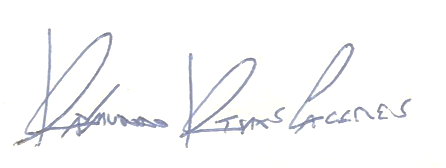 Raimundo Rivas Caceres